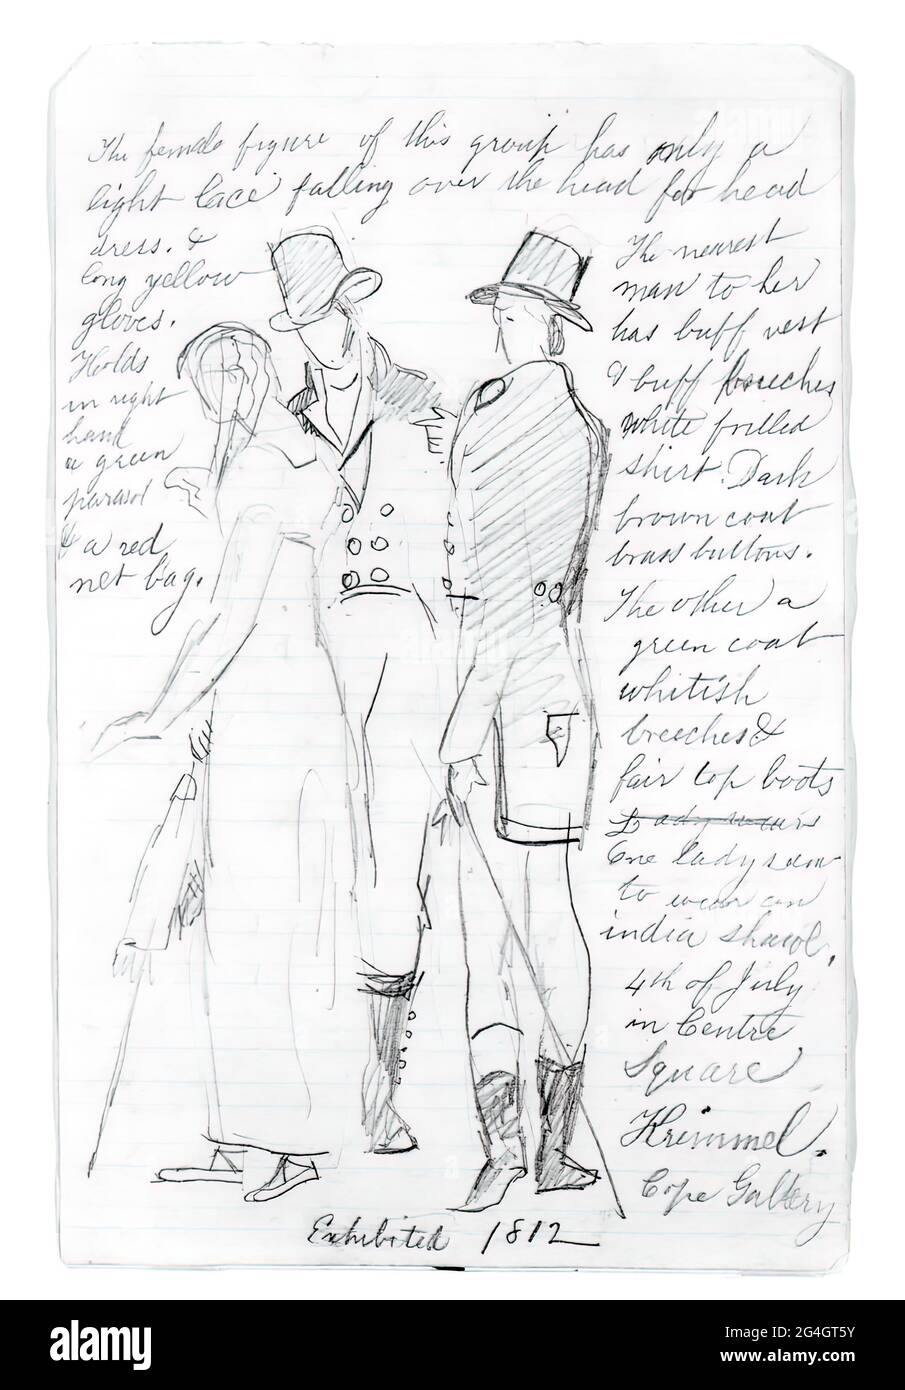 The female figure of this group has only a
light lace falling over the head for head
dress. &
long yellow
gloves.
Holds
in right
hand
a green
parasol
& a red
net bag.
The nearest
man to her
has buff vest
& buff breeches
white frilled
shirt. Dark
brown coat
brass buttons.
The other a
green coat
whitish
breeches &
fair top boots
Lady wears
One lady saw
to wear an
india shawl.
4th of July
in Centre
Square
Krimmel.
Cope Gallery
Exhibited 1812
alamy
Image ID: 2G4GT5Y
www.alamy.com